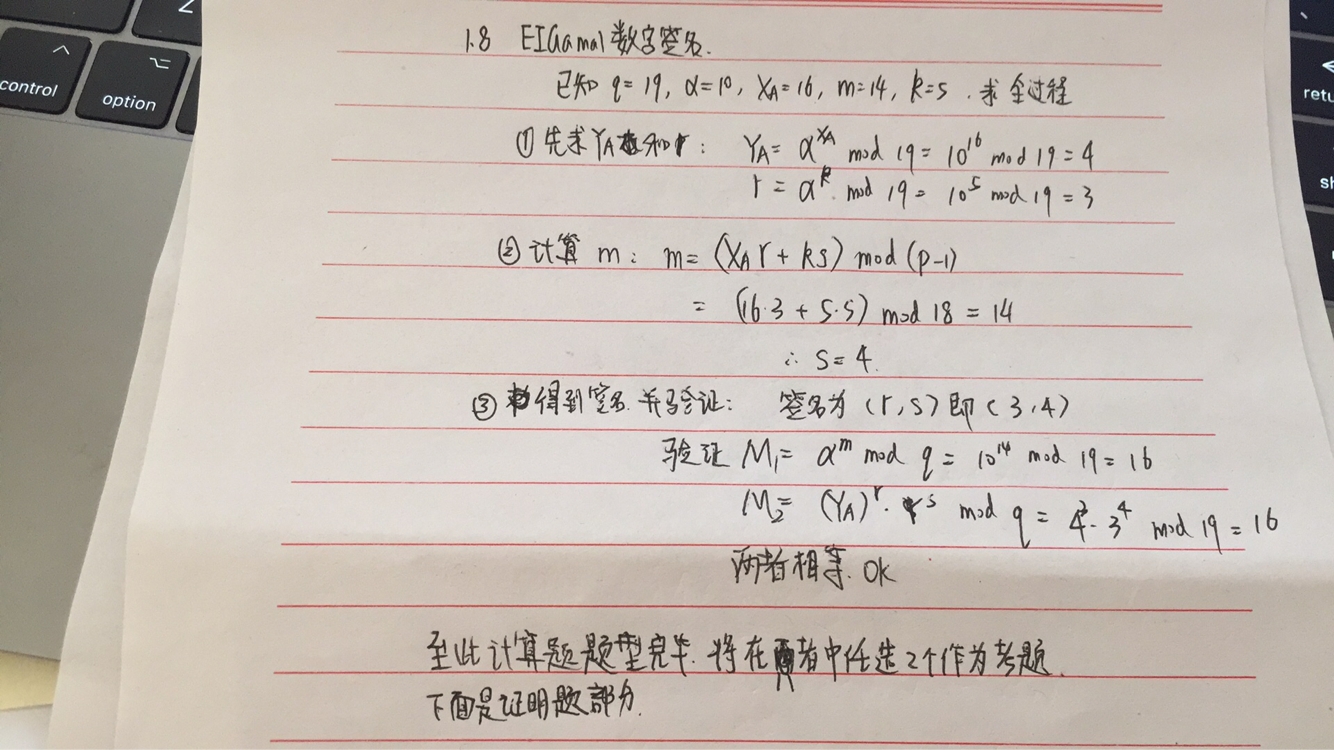 control
option
Z
retu
sh
1.8 ElGamal 数字签名.
已知 q=19, α=10, XA=16, m=14, k=5. 求全过程
① 先求YA和r: YA= α^XA mod 19= 10^16 mod 19=4
r = α^k. mod 19= 10^5 mod 19=3
② 计算 m: m= (XA r + ks) mod (p-1)
= (16·3 + 5·5) mod 18 = 14
∴ S= 4.
③ 得到签名.并验证: 签名为 (r,s) 即 (3,4)
验证 M1= α^m mod q = 10^14 mod 19= 16
M2= (YA)^r · r^s mod q = 4^3· 3^4 mod 19 = 16
两者相等. OK
至此计算题题型完毕. 将在两者中任选2个作为考题.
下面是证明题部分.